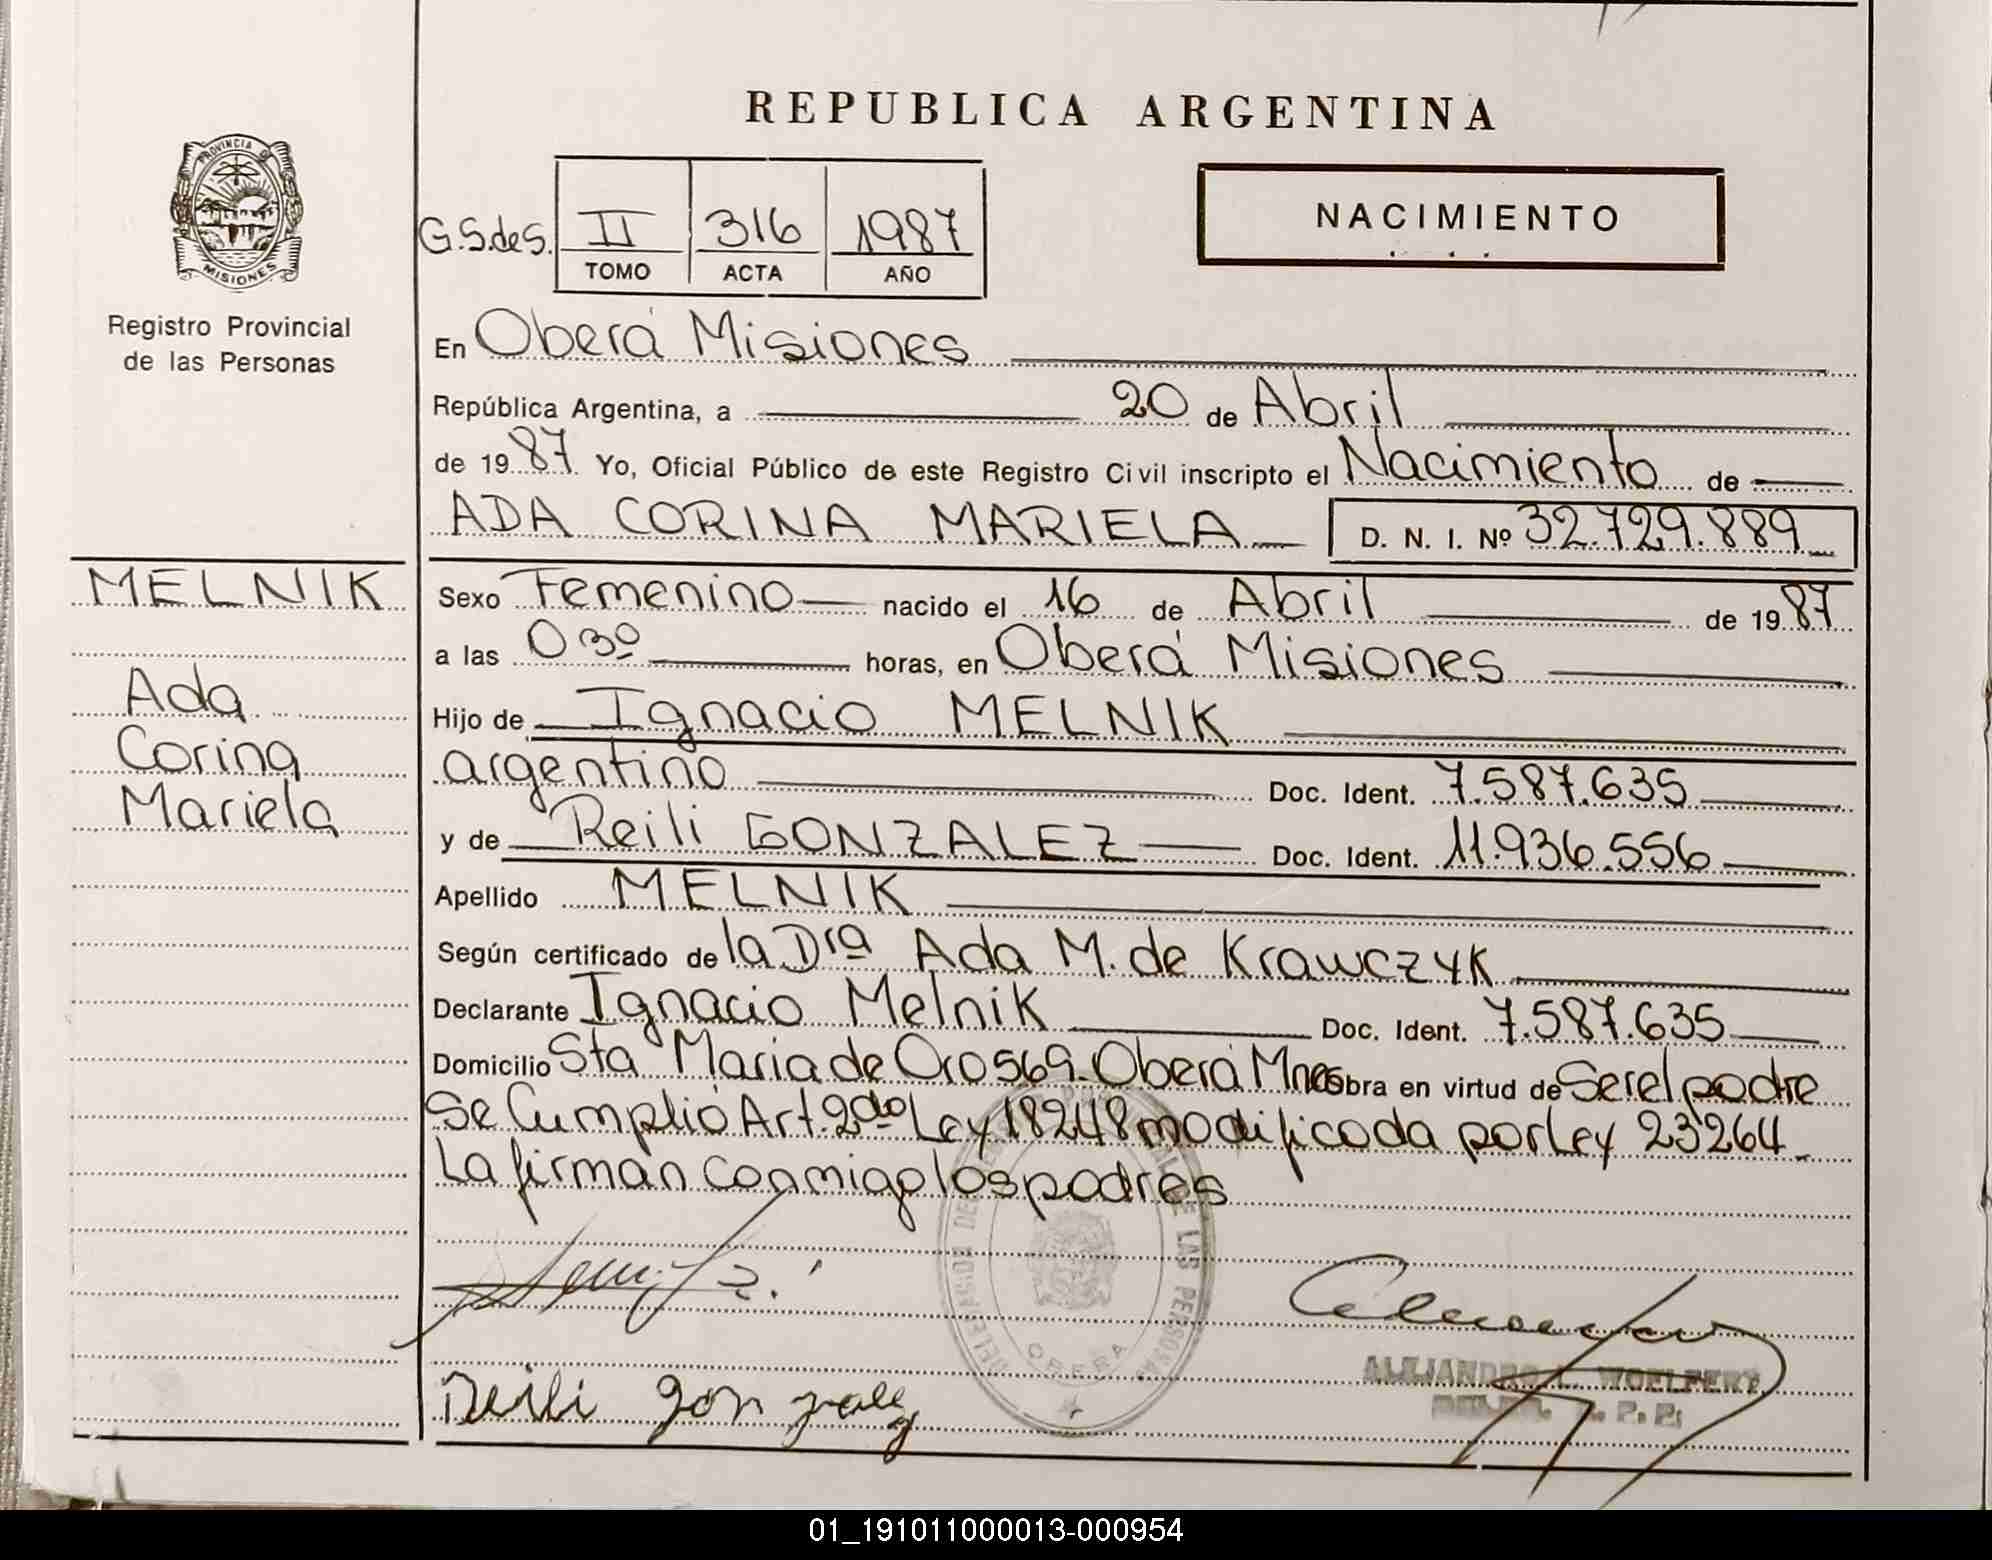 REPUBLICA ARGENTINA
PROVINCIA DE
MISIONES
Registro Provincial
de las Personas
G.S.deS. II 316 1987
TOMO ACTA AÑO
NACIMIENTO
En Oberá Misiones
República Argentina, a 20 de Abril
de 1987 Yo, Oficial Público de este Registro Civil inscripto el Nacimiento de
ADA CORINA MARIELA D. N. I. Nº 32.729.889
MELNIK
Ada
Corina
Mariela
Sexo Femenino nacido el 16 de Abril de 1987
a las 03º horas, en Oberá Misiones
Hijo de Ignacio MELNIK
argentino Doc. Ident. 7.587.635
y de Reili GONZALEZ Doc. Ident. 11.936.556
Apellido MELNIK
Según certificado de la Dra Ada M. de Krawczyk
Declarante Ignacio Melnik Doc. Ident. 7.587.635
Domicilio Sta Maria de Oro 569. Oberá Mnes Obra en virtud de Ser el padre
Se Cumplió Art. 2do Ley 18248 modificada por Ley 23264
La firman conmigo los padres
DE LAS PERSONAS
OBERA
Reili Gonzalez
ALEJANDRO L. WOELFERT
01_191011000013-000954